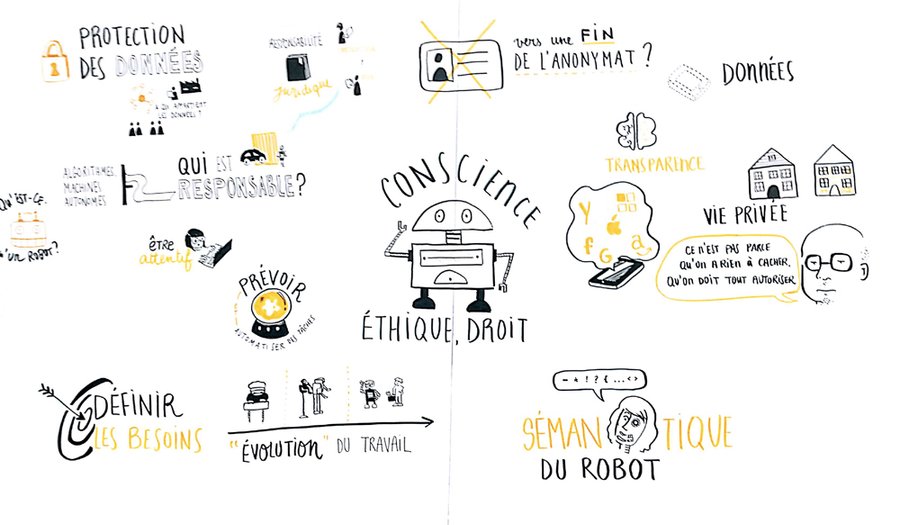 PROTECTION
DES DONNÉES
À QUI APPARTIENT
LES DONNÉES ?
RESPONSABILITÉ
Juridique
vers une FIN
DE L'ANONYMAT ?
DONNÉES
ALGORITHMES
MACHINES
AUTONOMES
QUI EST
RESPONSABLE ?
QU'EST-CE
QU'UN ROBOT ?
être
attentif
PRÉVOIR
AUTOMATISER DES TÂCHES
CONSCIENCE
ÉTHIQUE, DROIT
TRANSPARENCE
Y
f G a
VIE PRIVÉE
CE N'EST PAS PARCE
QU'ON A RIEN À CACHER,
QU'ON DOIT TOUT AUTORISER
DÉFINIR
LES BESOINS
"ÉVOLUTION" DU TRAVAIL
- * ! ? { ... <>
SÉMANTIQUE
DU ROBOT